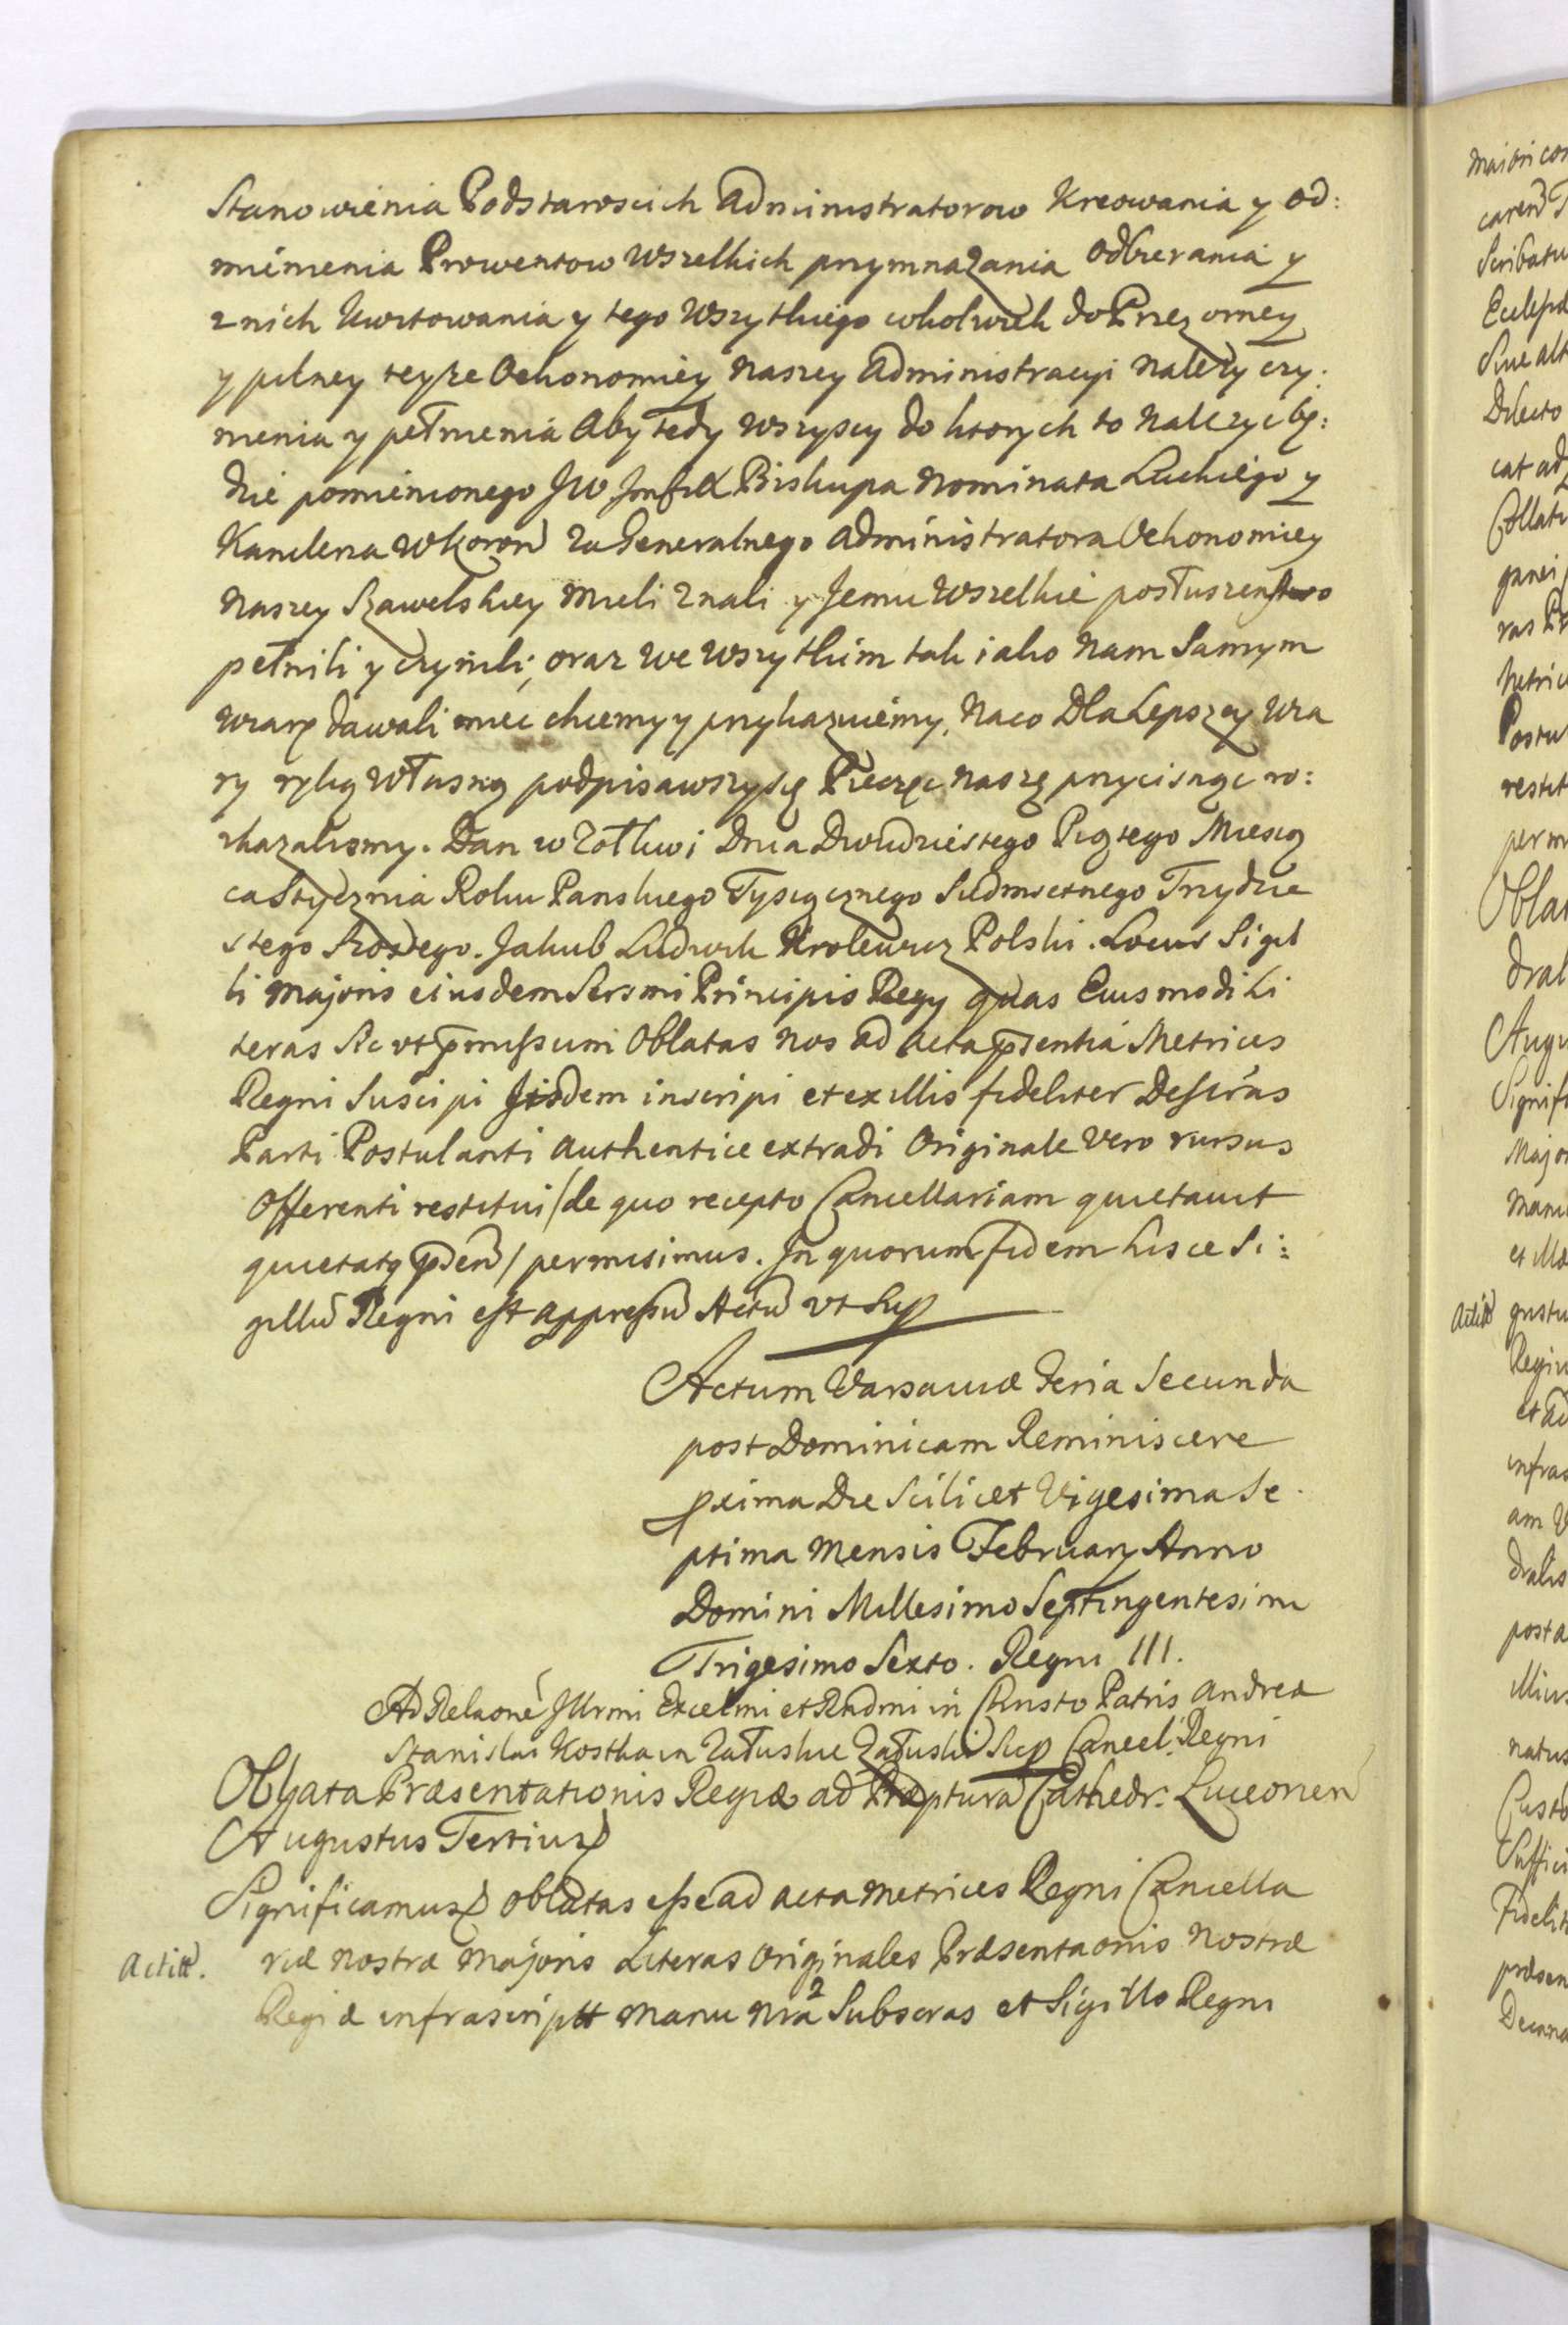 Stanowienia Podstaroscich Administratorow Kreowania y od:
mienienia Prowentow wszelkich przymnażania odbierania y
z nich kwitowania y tego wszytkiego cokolwiek do Przezorney
y pilney teyże Oekonomiey Naszey Administracyi należy czy:
nienia y pełnienia Aby tedy wszyscy do ktorych to należyc bę:
dzie pomienionego JW Jmsci X Biskupa Nominata Luckiego y
Kanclerza W Koron za Generalnego Administratora Oekonomiey
Naszey Szawelskiey mieli znali y Jemu wszelkie posłuszenstwo
pełnili y czynili, oraz we wszytkim tak iako Nam Samym
wiarę dawali miec chcemy y przykazuiemy, Na co Dla Lepszey wia
ry ręką własną podpisawszy się Pieczęc naszę przycisnąc ro:
zkazalismy. Dan w Zołkwi Dnia Dwudziestego Piątego Miesią
ca Stycznia Roku Panskiego Tysiącznego Siedmsetnego Trzydzie
stego Szostego. Jakub Ludwik Krolewicz Polski. Locus Sigil
li Majoris eiusdem Sersmi Principis Regy quas Eiusmodi Li
teras &c vt pmissum Oblatas nos ad Acta psentia Metrices
Regni Suscipi Jisdem inscripi et ex illis fideliter Descras
Parti Postulanti authentice extradi Originale vero rursus
Offerenti restitui /de quo recepto Cancellariam quietauit
quietatq psen/ permisimus. In quorum fidem hisce Si:
gillu Regni est appressu Actu vt Sup
Actum Varsauiæ Feria Secunda
post Dominicam Reminiscere
pxima Die Scilicet Vigesima Se
ptima Mensis February Anno
Domini Millesimo Septingentesimo
Trigesimo Sexto. Regni III.
Ad Relaone Jllrmi Excelmi et Rndmi in Christo Patris Andreæ
Stanislai Kostka in Załuskie Załuski Sup Cancel. Regni
Oblata Præsentationis Regiæ ad Præptura Cathedr: Luceorien
Augustus Tertius
Significamus oblatas esse ad acta Metrices Regni Cancella
Actitt. riæ nostræ Majoris Literas Originales Præsentaonis nostræ
Regiæ infrascriptt manu nra Subscras et Sigillo Regni